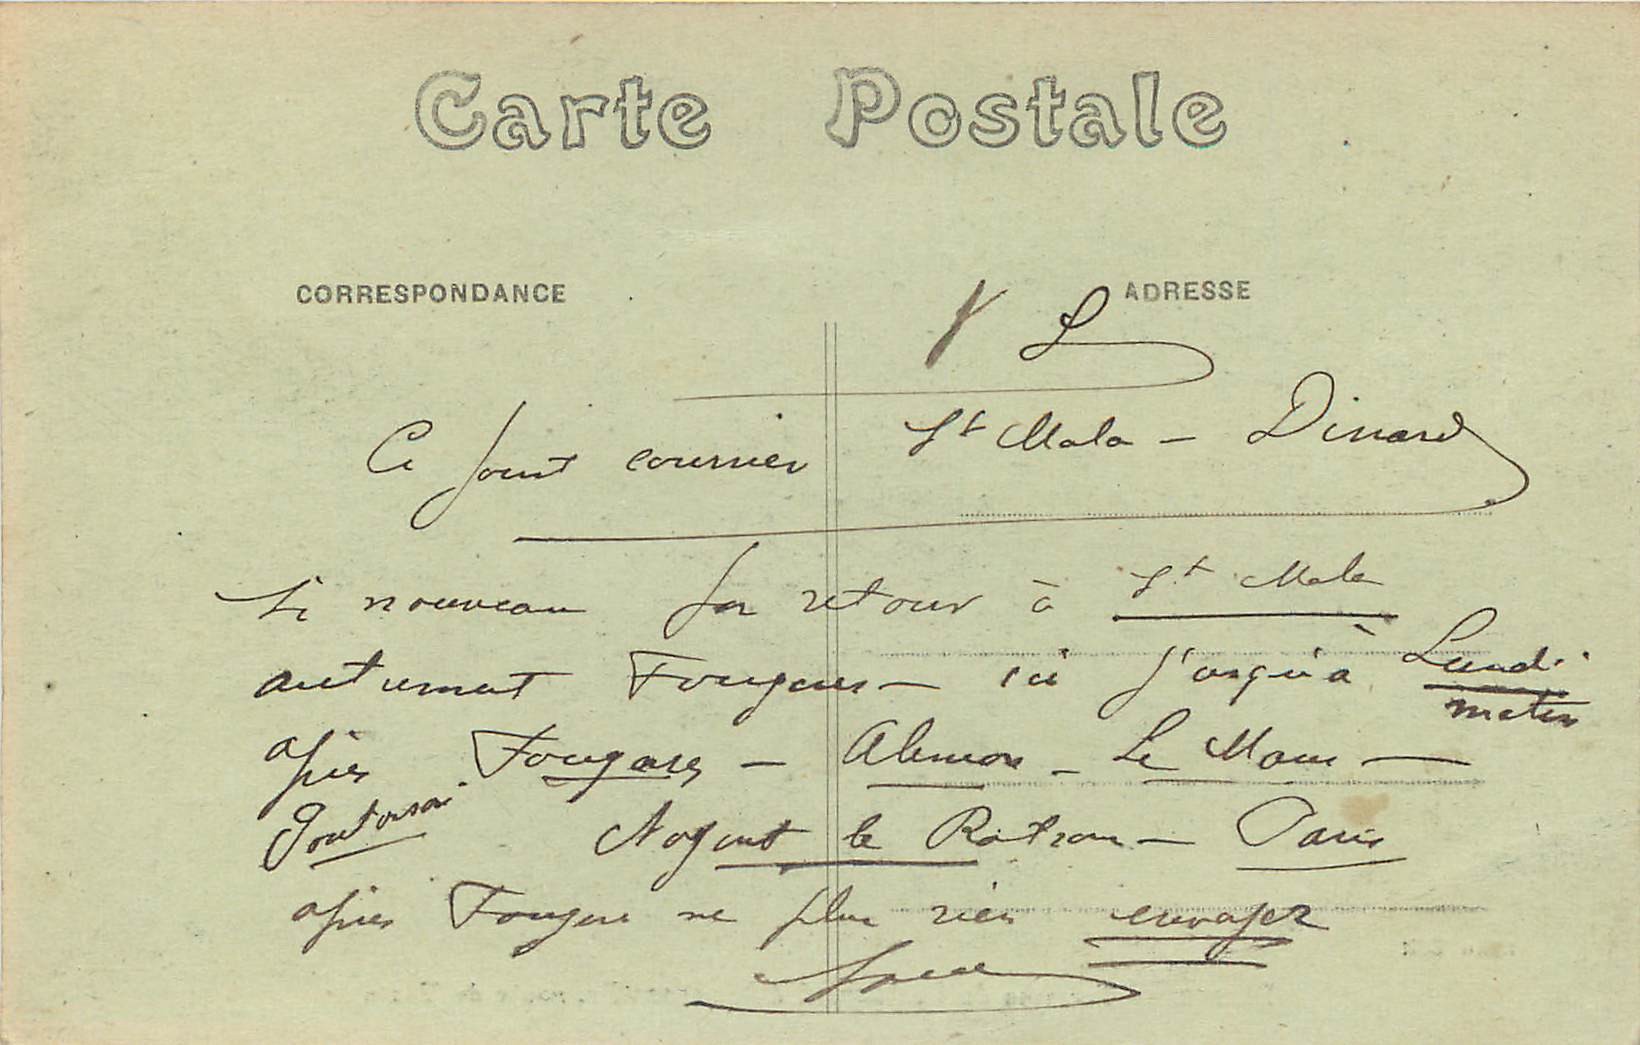 Carte Postale
CORRESPONDANCE
ADRESSE
St Malo - Dinard
Ci joint courrier
Si nouveau retour à St Malo
autrement Fougeres - ici jusqu'à Lundi
matin
après Fougeres - Alencon - Le Mans -
Pontorson
Nogent le Rotrou - Paris
après Fougere ne plus rien envoyer